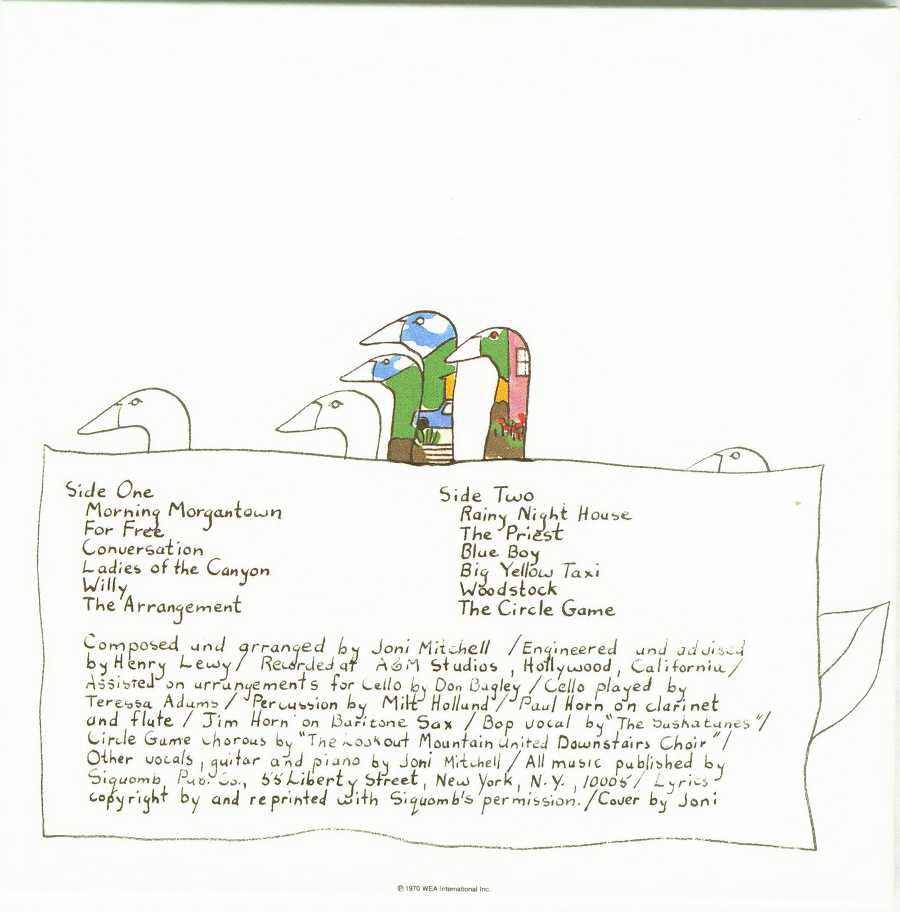 Side One
Morning Morgantown
For Free
Conversation
Ladies of the Canyon
Willy
The Arrangement
Side Two
Rainy Night House
The Priest
Blue Boy
Big Yellow Taxi
Woodstock
The Circle Game
Composed und arranged by Joni Mitchell / Engineered und advised
by Henry Lewy / Recorded at A&M Studios , Hollywood , California /
Assisted on arrangements for Cello by Don Bagley / Cello played by
Teressa Adams / Percussion by Milt Holland / Paul Horn on clarinet
and flute / Jim Horn on Baritone Sax / Bop vocal by "The Saskatunes" /
Circle Game chorous by "The Lookout Mountain United Downstairs Choir" /
Other vocals , guitar and piano by Joni Mitchell / All music published by
Siquomb Pub. Co., 55 Liberty Street, New York, N.Y., 10005 / Lyrics
copyright by and reprinted with Siquomb's permission. / Cover by Joni
℗ 1970 WEA International Inc.